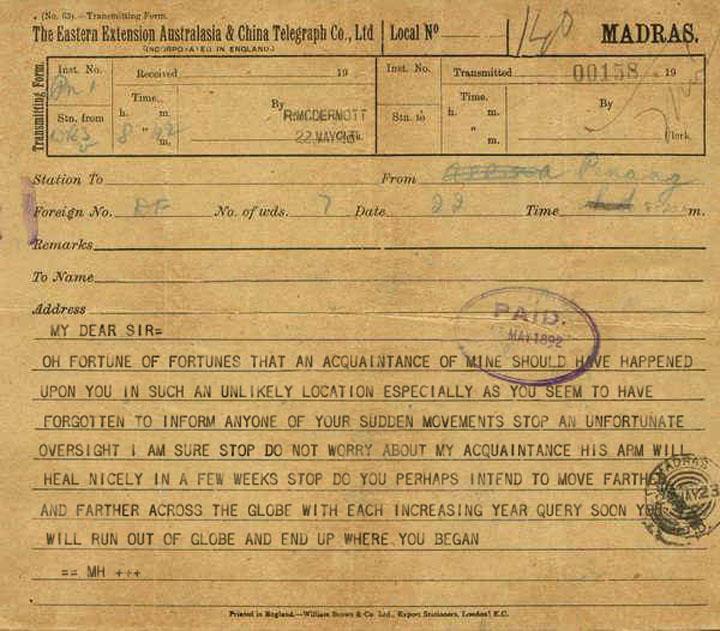 (No. 63).—Transmitting Form.
The Eastern Extension Australasia & China Telegraph Co., Ltd
(INCORPORATED IN ENGLAND.)
Local No
140
MADRAS.
Transmitting Form.
Inst. No. Received 19 Inst. No. Transmitted 00158 19
Pn 1
Time. By Time. By
Stn. from h. m. Stn. to h. m.
" m. " m. Clerk.
8 42
R.MCDERMOTT
22.MAY
Station To From Penang
Foreign No. DF No. of wds. 7 Date 22 Time m.
Remarks
To Name
Address
PAID.
MAY 1892
MY DEAR SIR=
OH FORTUNE OF FORTUNES THAT AN ACQUAINTANCE OF MINE SHOULD HAVE HAPPENED
UPON YOU IN SUCH AN UNLIKELY LOCATION ESPECIALLY AS YOU SEEM TO HAVE
FORGOTTEN TO INFORM ANYONE OF YOUR SUDDEN MOVEMENTS STOP AN UNFORTUNATE
OVERSIGHT I AM SURE STOP DO NOT WORRY ABOUT MY ACQUAINTANCE HIS ARM WILL
HEAL NICELY IN A FEW WEEKS STOP DO YOU PERHAPS INTEND TO MOVE FARTHER
AND FARTHER ACROSS THE GLOBE WITH EACH INCREASING YEAR QUERY SOON YOU
WILL RUN OUT OF GLOBE AND END UP WHERE YOU BEGAN
== MH +++
MADRAS
MAY 23
Printed in England.—William Brown & Co. Ltd., Export Stationers, London! E.C.